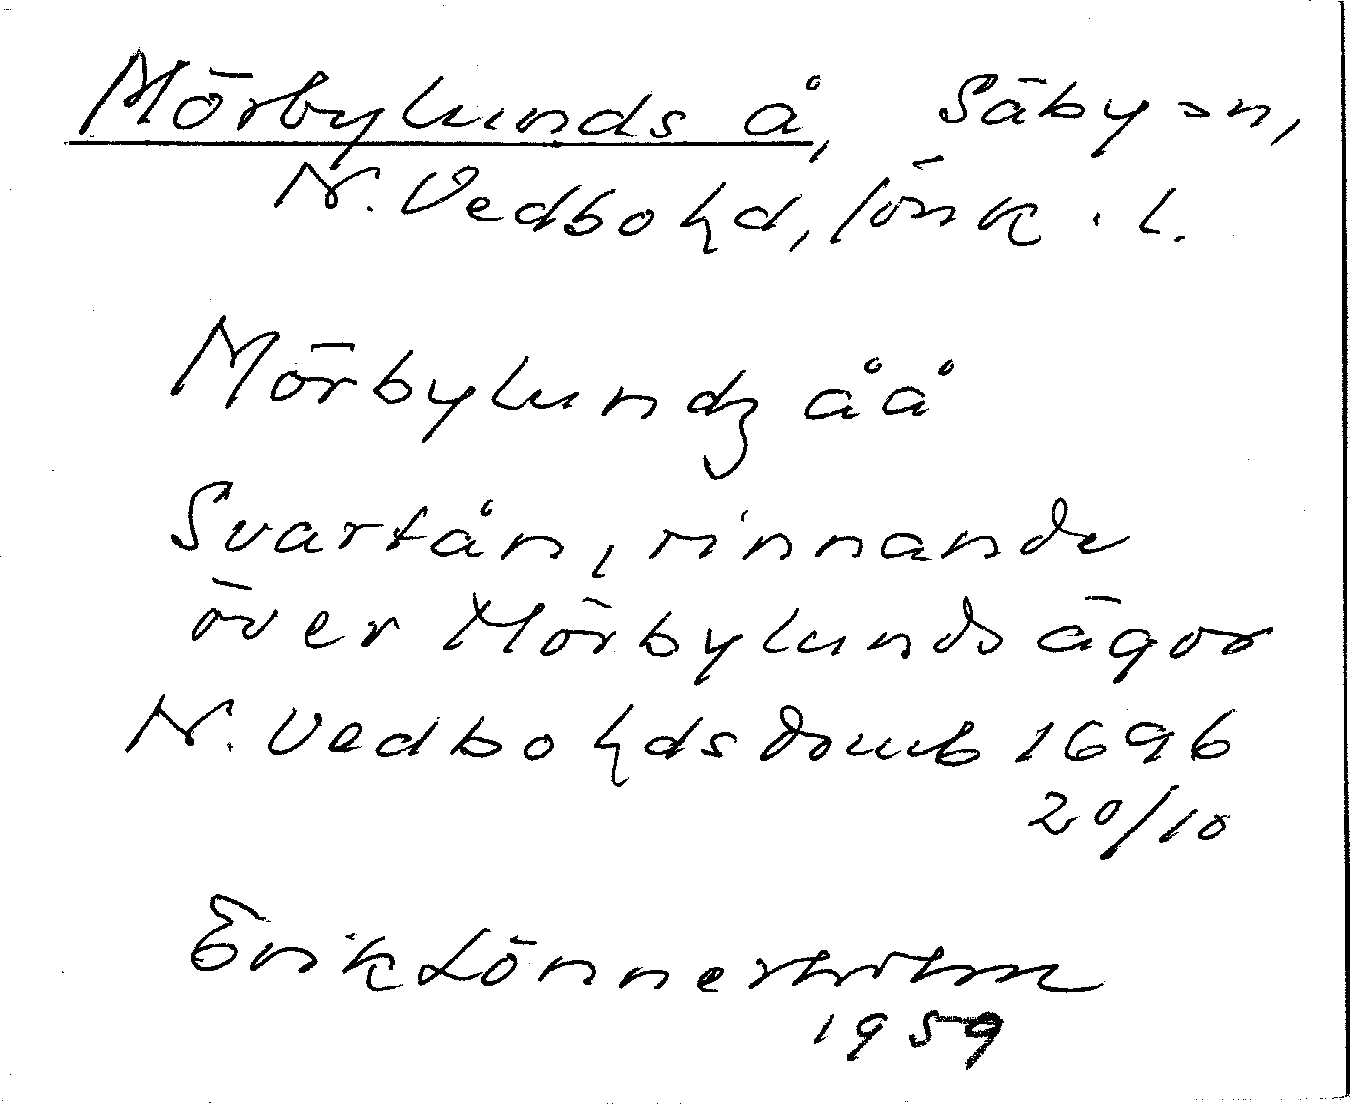 Mörbylunds å, Säby sn,
N. Vedbo hd, Jönk. l.
Mörbylundz åå
Svartån, rinnande
över Mörbylunds ägor
N. Vedbo hds domb 1696
20/10
Erik Lönnerholm
1959